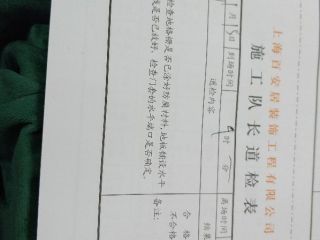 上海百安居装饰工程有限公司
施工队长道检表
月15日 到场时间 9时 分 离场时间
送检内容 结果
检查地格栅是否已涂好防腐材料,地板铺设水平
是否已校好。检查门套的水平端口是否确定。
合格
不合格
备注: